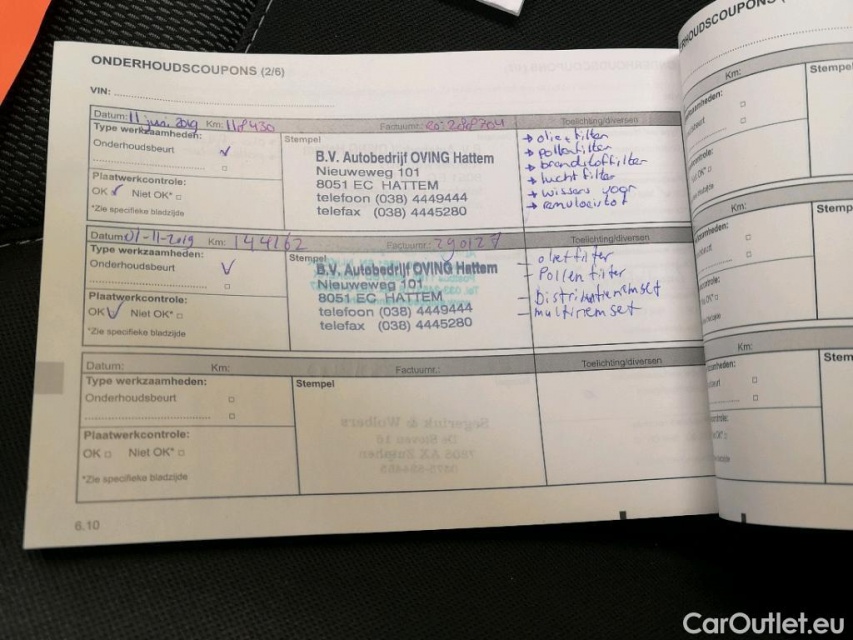 ONDERHOUDSCOUPONS (2/6)
VIN:
Datum: 11 juni 2019 Km: 118430 Factuurnr.: Toelichting/diversen
Type werkzaamheden:
Onderhoudsbeurt
Stempel
B.V. Autobedrijf OVING Hattem
Nieuweweg 101
8051 EC HATTEM
telefoon (038) 4449444
telefax (038) 4445280
→ olie+filter
→ pollenfilter
→ brandstoffilter
→ luchtfilter
→ wissers voor
→ remvloeistof
Plaatwerkcontrole:
OK Niet OK*
*Zie specifieke bladzijde
Datum: 01-11-2019 Km: 144162 Factuurnr.: 290127 Toelichting/diversen
Type werkzaamheden:
Onderhoudsbeurt
Stempel
B.V. Autobedrijf OVING Hattem
Nieuweweg 101
8051 EC HATTEM
telefoon (038) 4449444
telefax (038) 4445280
- olie+filter
- Pollenfilter
- Distributieriemset
- multiriemset
Plaatwerkcontrole:
OK Niet OK*
*Zie specifieke bladzijde
Datum: Km: Factuurnr.: Toelichting/diversen
Type werkzaamheden:
Onderhoudsbeurt
Stempel
Plaatwerkcontrole:
OK Niet OK*
*Zie specifieke bladzijde
6.10
Km:
Stempel
Km:
Km:
CarOutlet.eu